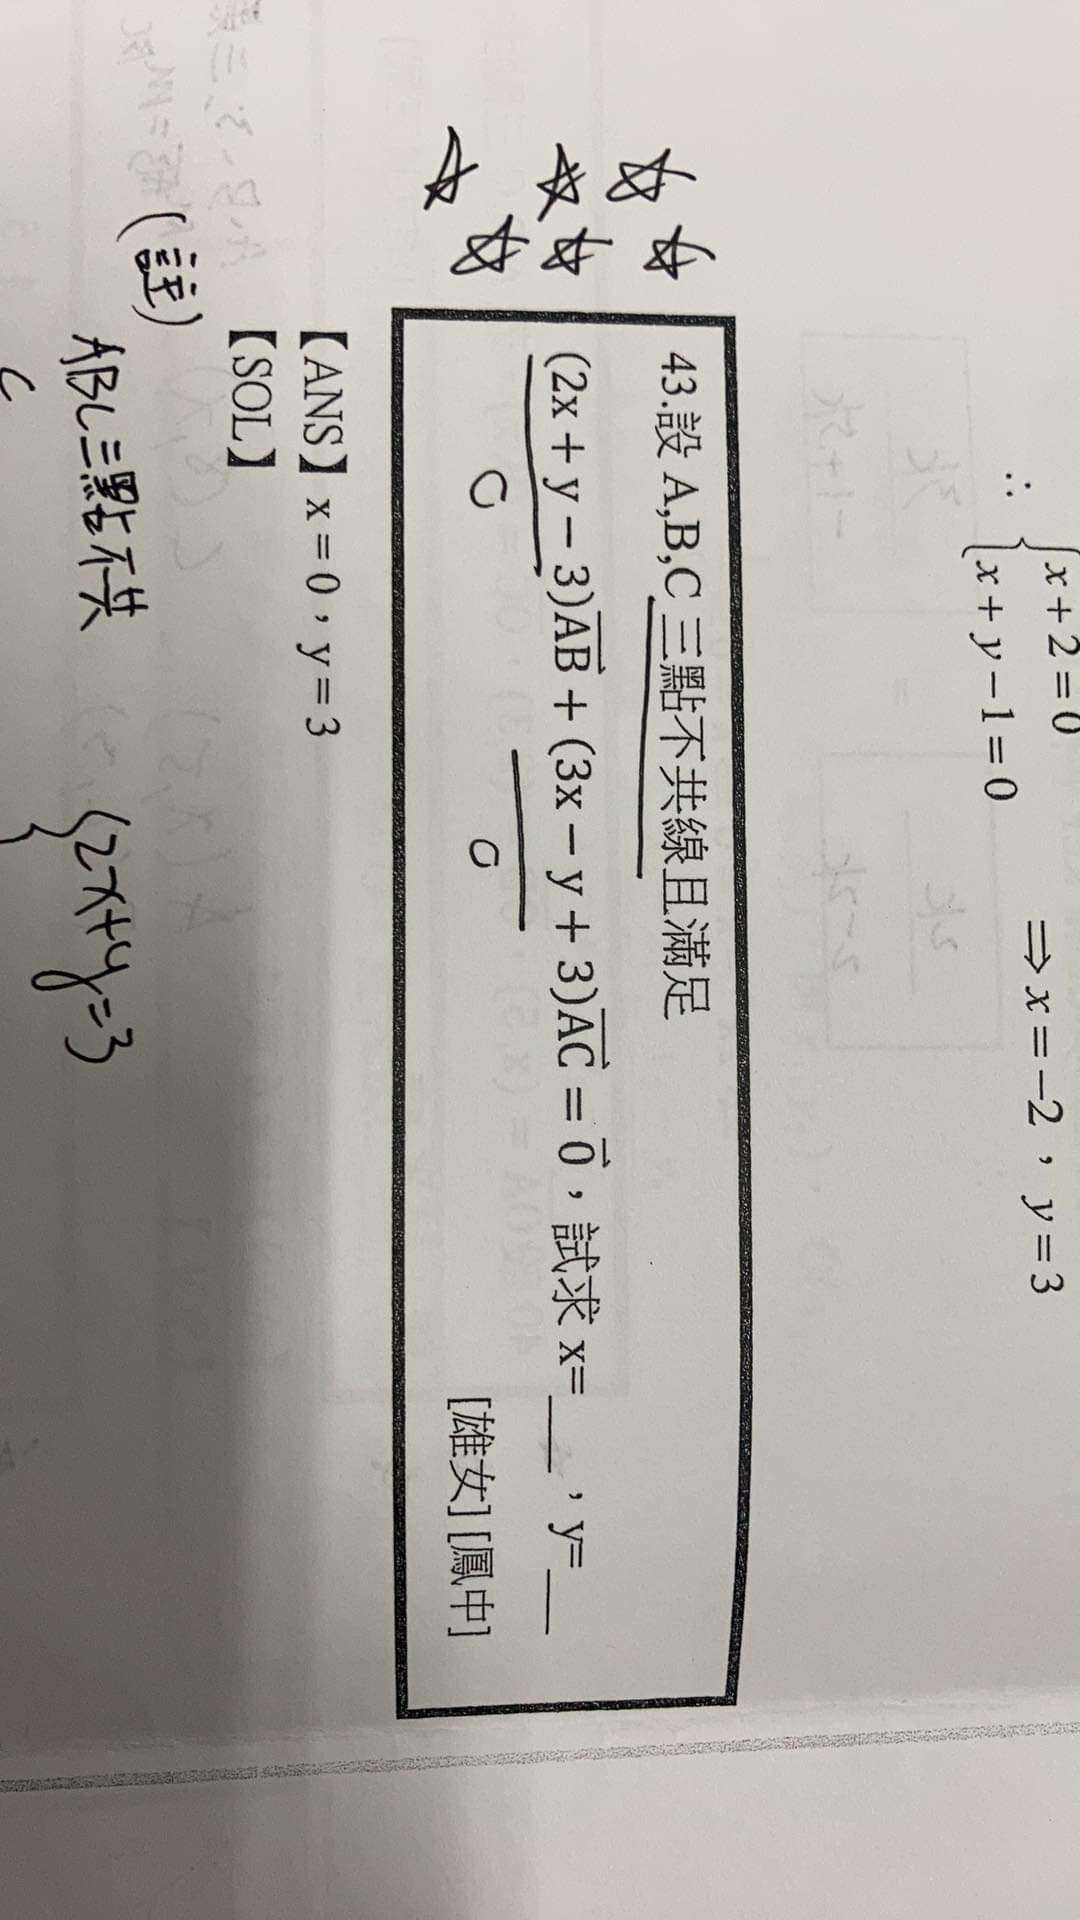 ∴ { x + 2 = 0
x + y − 1 = 0
⇒ x = −2，y = 3
43.設 A,B,C 三點不共線且滿足
(2x + y − 3)AB + (3x − y + 3)AC = 0，試求 x=___，y=___
0 0
[雄女] [鳳中]
【ANS】x = 0，y = 3
【SOL】
(註)
ABC三點不共
{2x+y=3